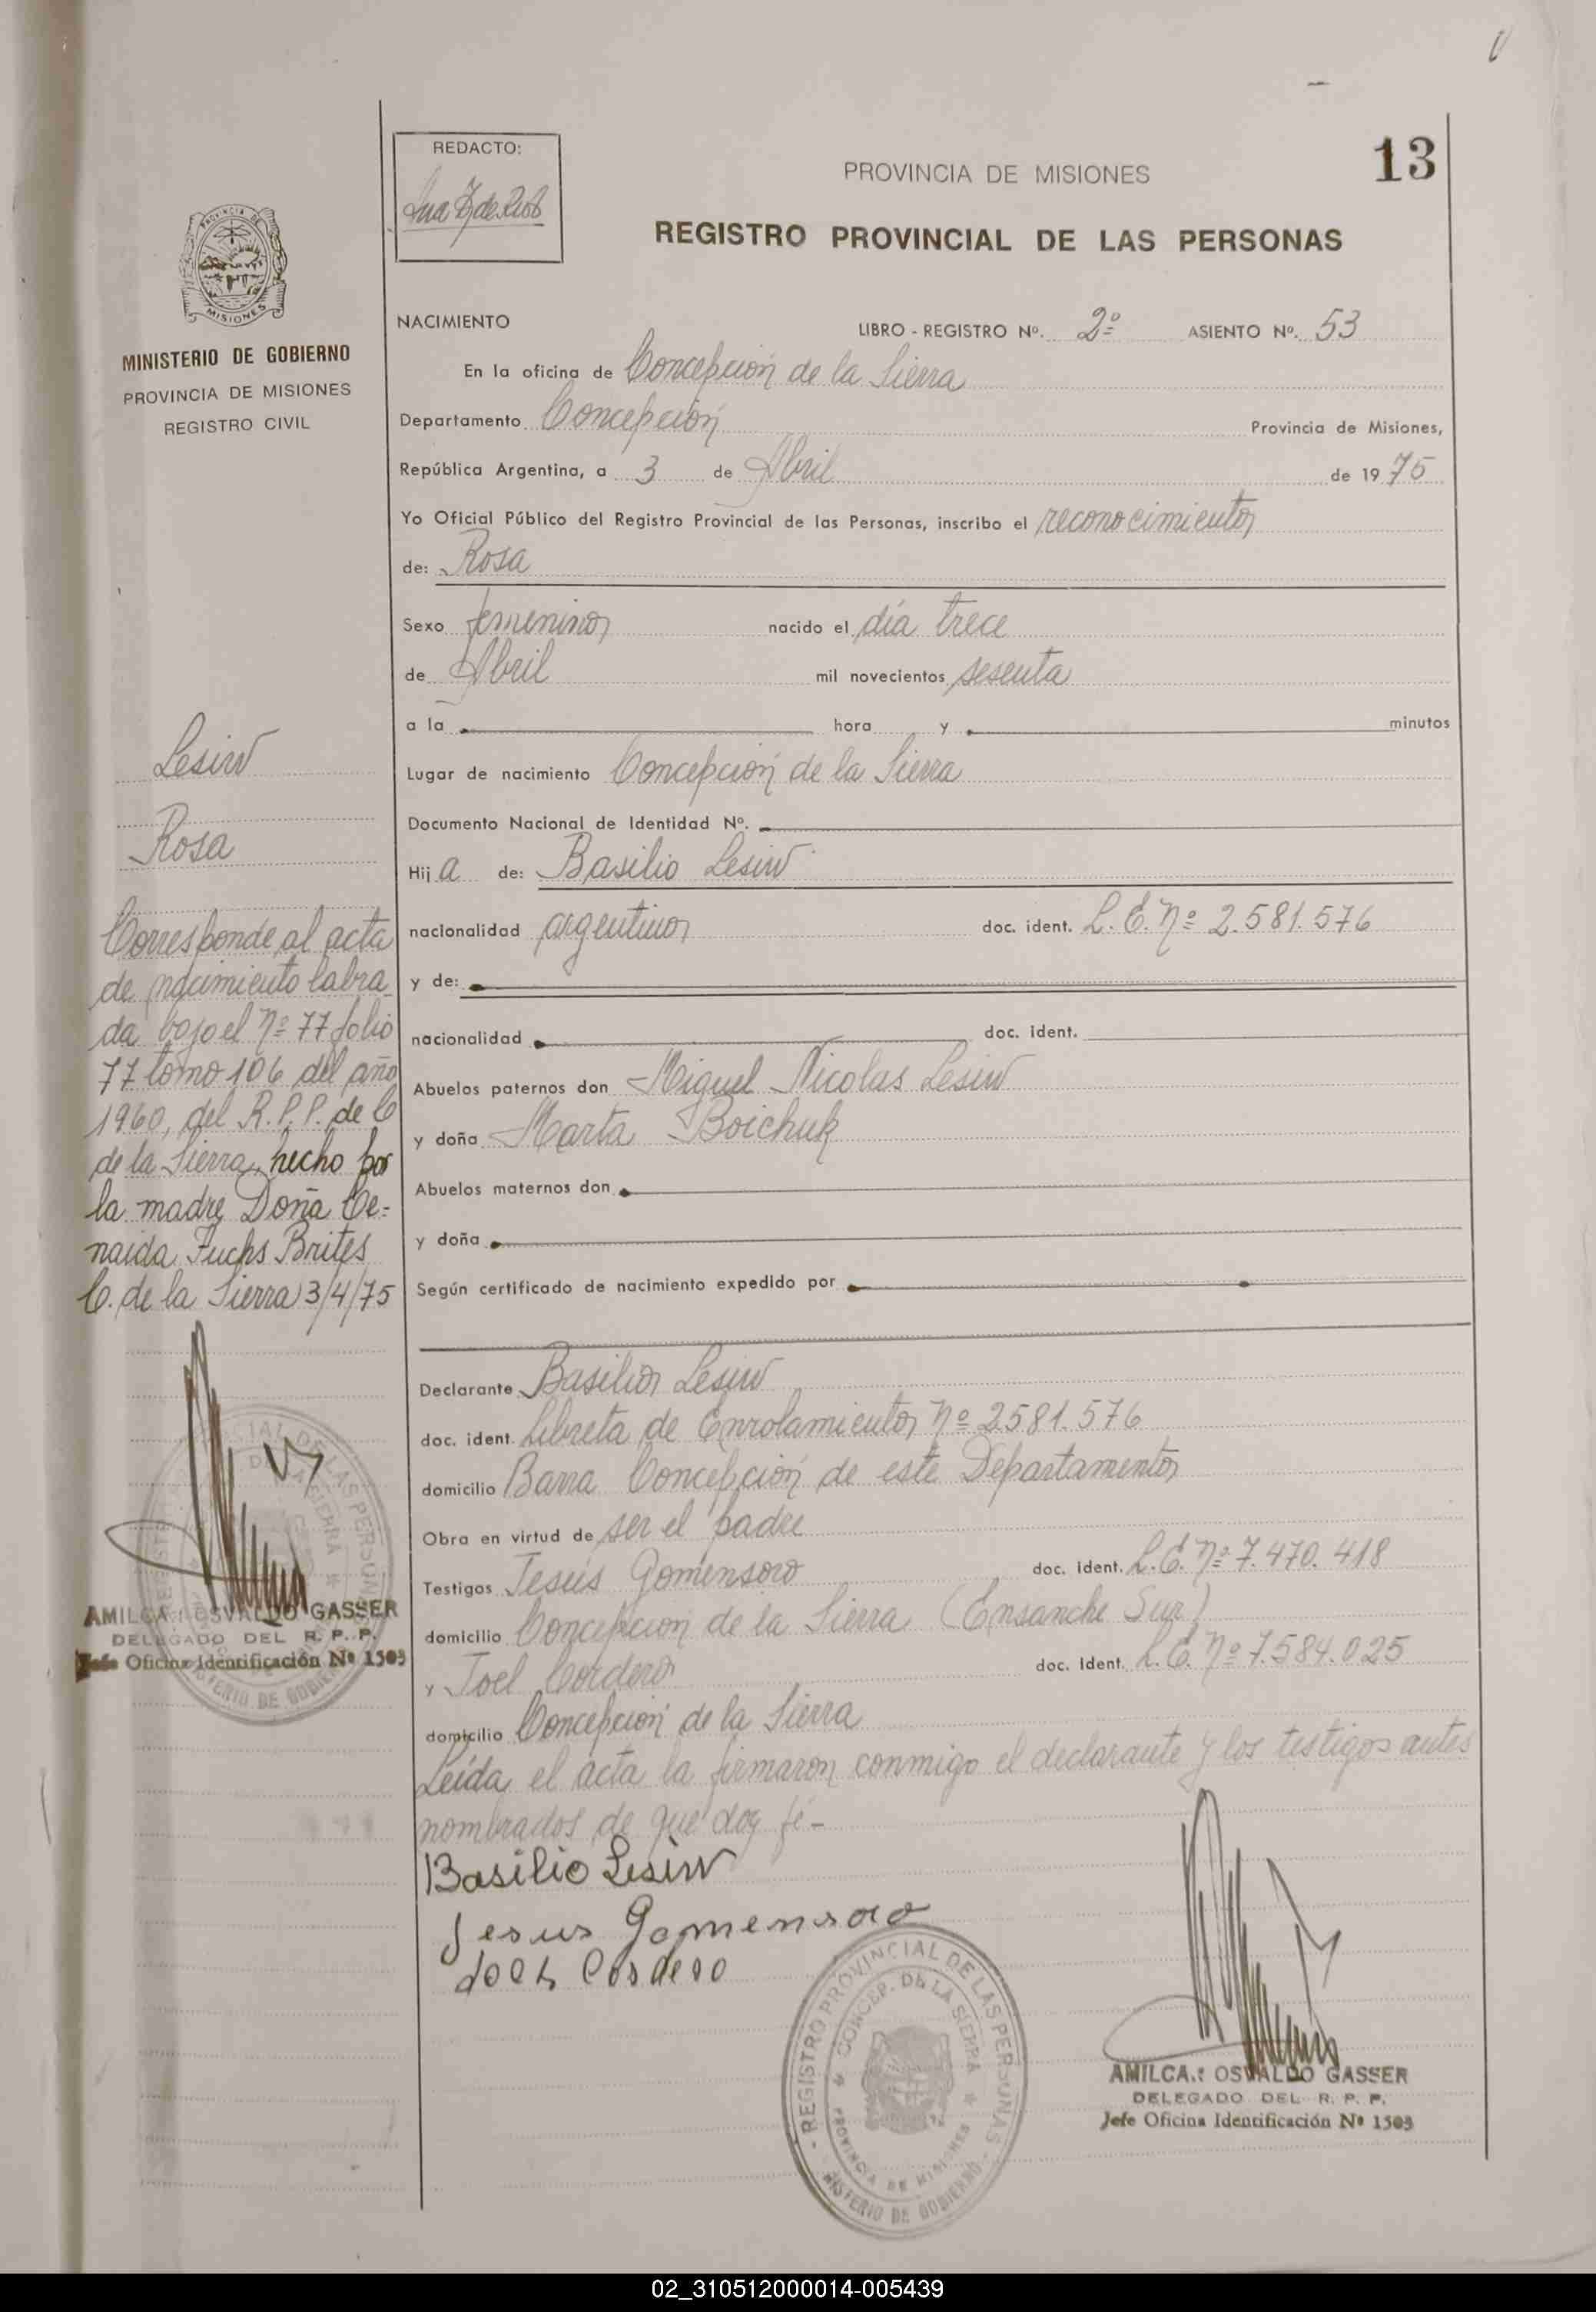 13
REDACTO:
PROVINCIA DE MISIONES
REGISTRO PROVINCIAL DE LAS PERSONAS
PROVINCIA DE
MISIONES
MINISTERIO DE GOBIERNO
PROVINCIA DE MISIONES
REGISTRO CIVIL
NACIMIENTO LIBRO - REGISTRO Nº. 2º ASIENTO Nº. 53
En la oficina de Concepción de la Sierra
Departamento Concepción Provincia de Misiones,
República Argentina, a 3 de Abril de 1975
Yo Oficial Público del Registro Provincial de las Personas, inscribo el reconocimiento
de: Rosa
Sexo femenino nacido el día trece
de Abril mil novecientos sesenta
a la hora y minutos
Lugar de nacimiento Concepción de la Sierra
Documento Nacional de Identidad Nº.
Hija de: Basilio Lesiw
nacionalidad argentino doc. ident. L.E. Nº 2.581.576
y de:
nacionalidad doc. ident.
Abuelos paternos don Miguel Nicolas Lesiw
y doña Marta Boichuk
Abuelos maternos don
y doña
Según certificado de nacimiento expedido por
Declarante Basilio Lesiw
doc. ident. Libreta de Enrolamiento Nº 2581.576
domicilio Barra Concepción de este Departamento
Obra en virtud de ser el padre
Testigos Jesús Gomensoro doc. ident. L.E. Nº 7.470.418
domicilio Concepción de la Sierra (Ensanche Sur)
y Joel Cordero doc. ident. L.E. Nº 7.584.025
domicilio Concepción de la Sierra
Leída el acta la firmaron conmigo el declarante y los testigos antes
nombrados de que doy fé-
Basilio Lesiw
Jesus Gomensoro
Joel Cordero
REGISTRO PROVINCIAL DE LAS PERSONAS
CONCEP. DE LA SIERRA
PROVINCIA DE MISIONES
MINISTERIO DE GOBIERNO
AMILCAR OSVALDO GASSER
DELEGADO DEL R. P. P.
Jefe Oficina Identificación Nº 1503
Lesiw
Rosa
Corresponde al acta
de nacimiento labra
da bajo el Nº 77 folio
77 tomo 106 del año
1960, del R.P.P. de C
de la Sierra, hecho por
la madre Doña Ce-
naida Fuchs Brites
C. de la Sierra 3/4/75
AMILCAR OSVALDO GASSER
DELEGADO DEL R. P. P.
Jefe Oficina Identificación Nº 1503
02_310512000014-005439